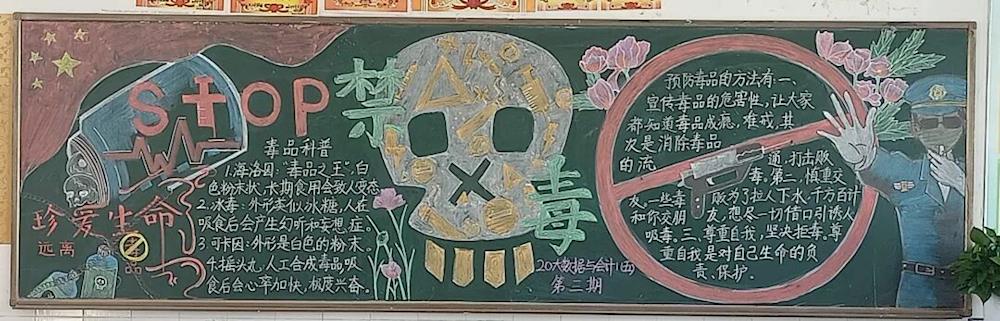 STOP
禁毒
毒品科普
1.海洛因:“毒品之王”,白
色粉末状,长期食用会致人变态
2.冰毒:外形类似冰糖,人在
吸食后会产生幻听和妄想症。
3.可卡因:外形是白色的粉末。
4.摇头丸,人工合成毒品,吸
食后会心率加快,极度兴奋。
珍爱生命
远离
品
20大数据与会计(五)
第三期
预防毒品的方法有一、
宣传毒品的危害性,让大家
都知道毒品成瘾,难戒,其
次是消除毒品
的流通,打击贩
毒。第二,慎重交
友,一些毒贩为了拉人下水,千方百计
和你交朋友,想尽一切借口引诱人
吸毒。三、尊重自我,坚决拒毒。尊
重自我是对自己生命的负
责、保护。